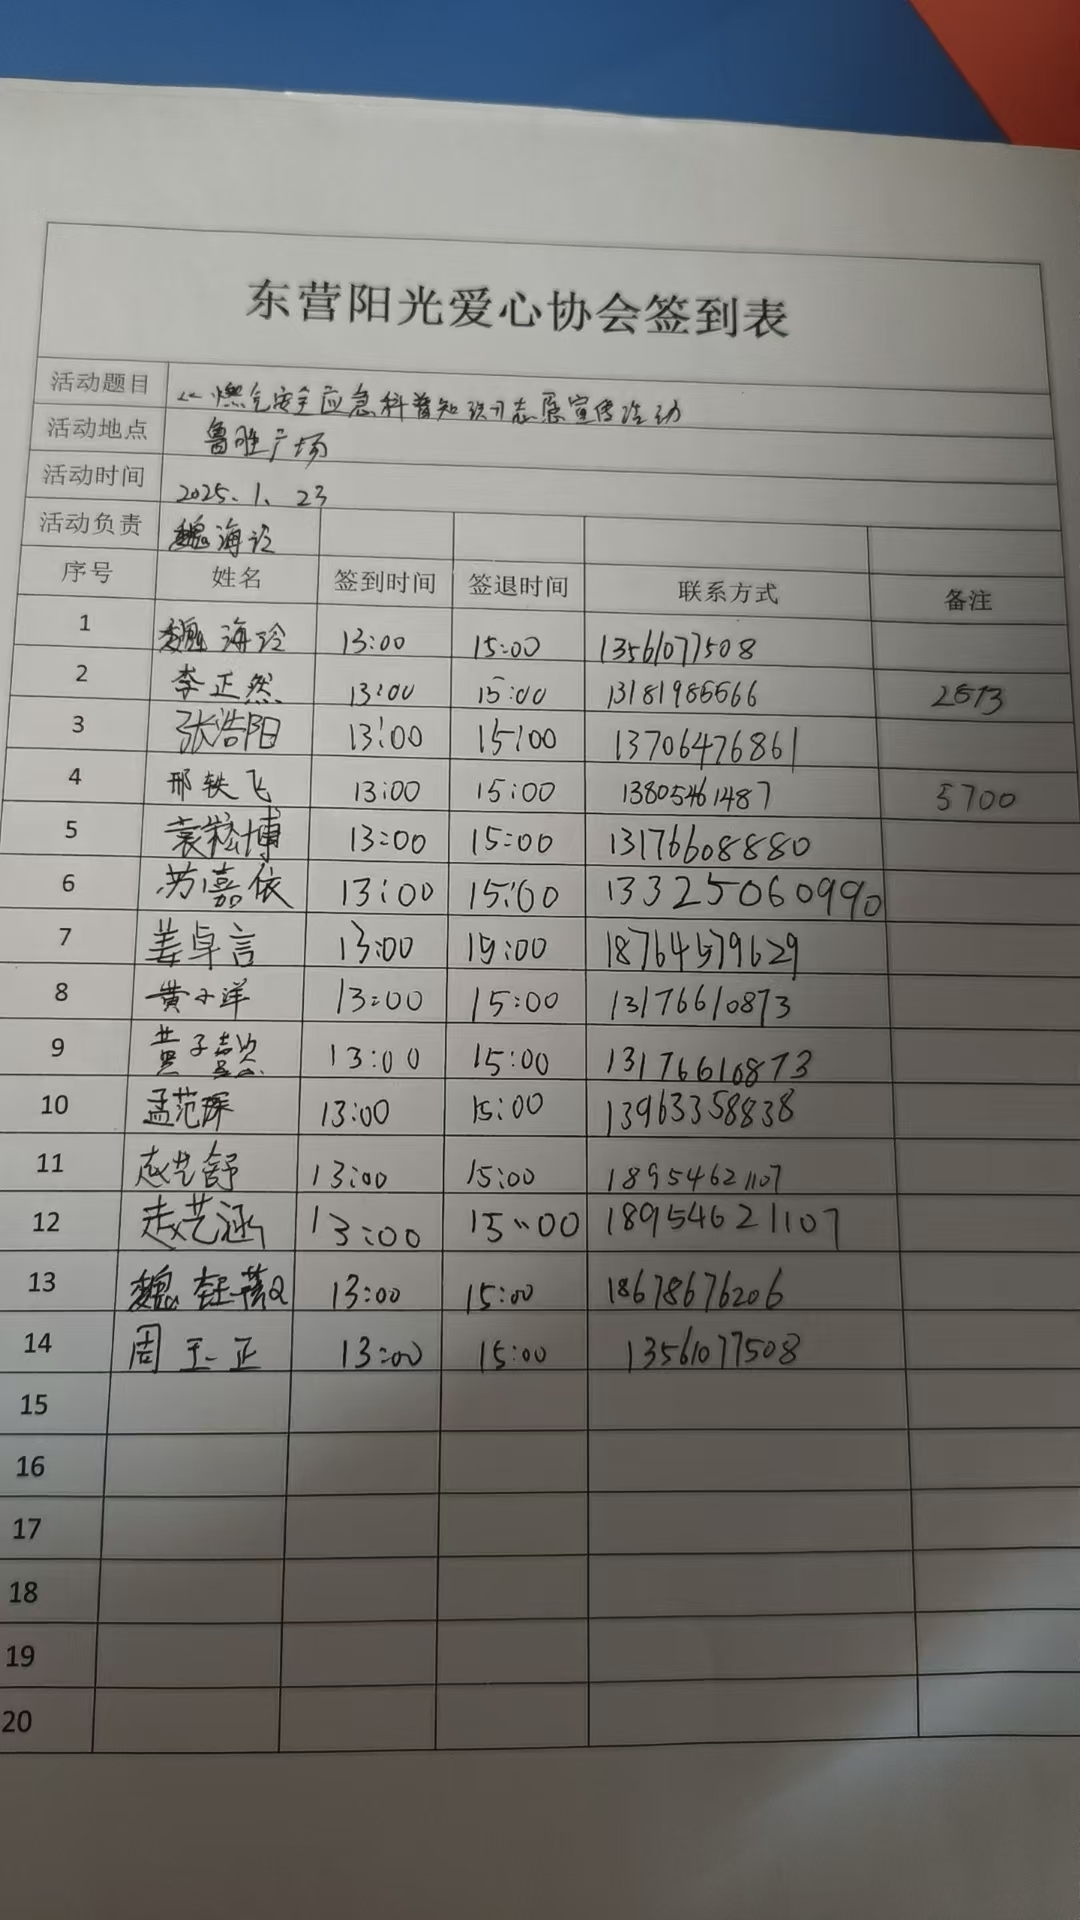 东营阳光爱心协会签到表
活动题目 燃气安全应急科普知识志愿宣传活动
活动地点 鲁胜广场
活动时间 2025.1.23
活动负责 魏海玲
序号 姓名 签到时间 签退时间 联系方式 备注
1 魏海玲 13:00 15:00 13561077508
2 李正然 13:00 15:00 13181985566 2573
3 张浩阳 13:00 15:00 13706476861
4 邢轶飞 13:00 15:00 13805461487 5700
5 袁崧博 13:00 15:00 13176608880
6 嘉依 13:00 15:00 13325060990
7 姜卓言 13:00 15:00 18764579629
8 黄子洋 13:00 15:00 13176610873
9 黄子懿 13:00 15:00 13176610873
10 孟范琛 13:00 15:00 13963358838
11 赵艺舒 13:00 15:00 18954621107
12 赵艺涵 13:00 15:00 18954621107
13 魏 13:00 15:00 18678676206
14 周正 13:00 15:00 13561077508
15
16
17
18
19
20